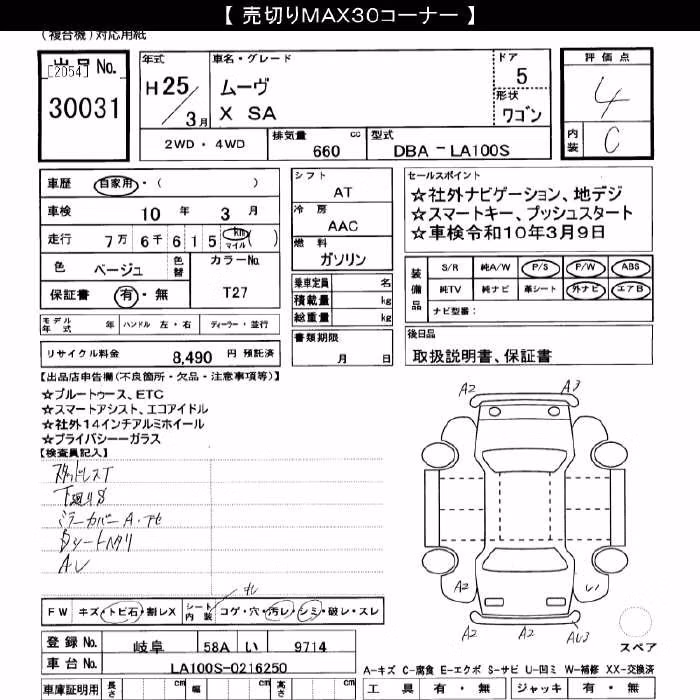 【 売切りMAX30コーナー 】
(複合機)対応用紙
出品No.
[2054]
30031
年式
H 25 / 3月
車名・グレード
ムーヴ
X SA
ドア
5
形状
ワゴン
評価点
4
内装
C
2WD・4WD
排気量 660 cc
型式 DBA-LA100S
車歴 自家用・( )
車検 10年 3月
走行 7万 6千 6 1 5 km マイル ( )
色 ベージュ 色替
カラーNo. T27
保証書 有・無
モデル年式 年 ハンドル 左・右 ディーラー・並行
リサイクル料金 8,490 円 預託済
シフト
AT
冷房
AAC
燃料
ガソリン
乗車定員 名
積載量 kg
総重量 kg
書類期限
月 日
セールスポイント
☆社外ナビゲーション、地デジ
☆スマートキー、プッシュスタート
☆車検令和10年3月9日
装備品
S/R 純A/W P/S P/W ABS
純TV 純ナビ 革シート 外ナビ エアB
ナビ型番:
後日品
取扱説明書、保証書
【出品店申告欄(不良箇所・欠品・注意事項等)】
☆ブルートゥース、ETC
☆スマートアシスト、エコアイドル
☆社外14インチアルミホイール
☆プライバシーーガラス
【検査員記入】
スタッドレスT
下廻りS
ミラーカバー A・アセ
Dシートヘタリ
A
FW キズ・トビ石・割レX
シート内装 コゲ・穴・汚レ・シミ・破レ・スレ
A2 A3
A2 A2
登録No. 岐阜 58A い 9714
車台No. LA100S-0216250
車庫証明用 長さ cm 幅 cm 高さ cm
スペア
A-キズ C-腐食 E-エクボ S-サビ U-凹ミ W-補修 XX-交換済
工具 有・無 ジャッキ 有・無